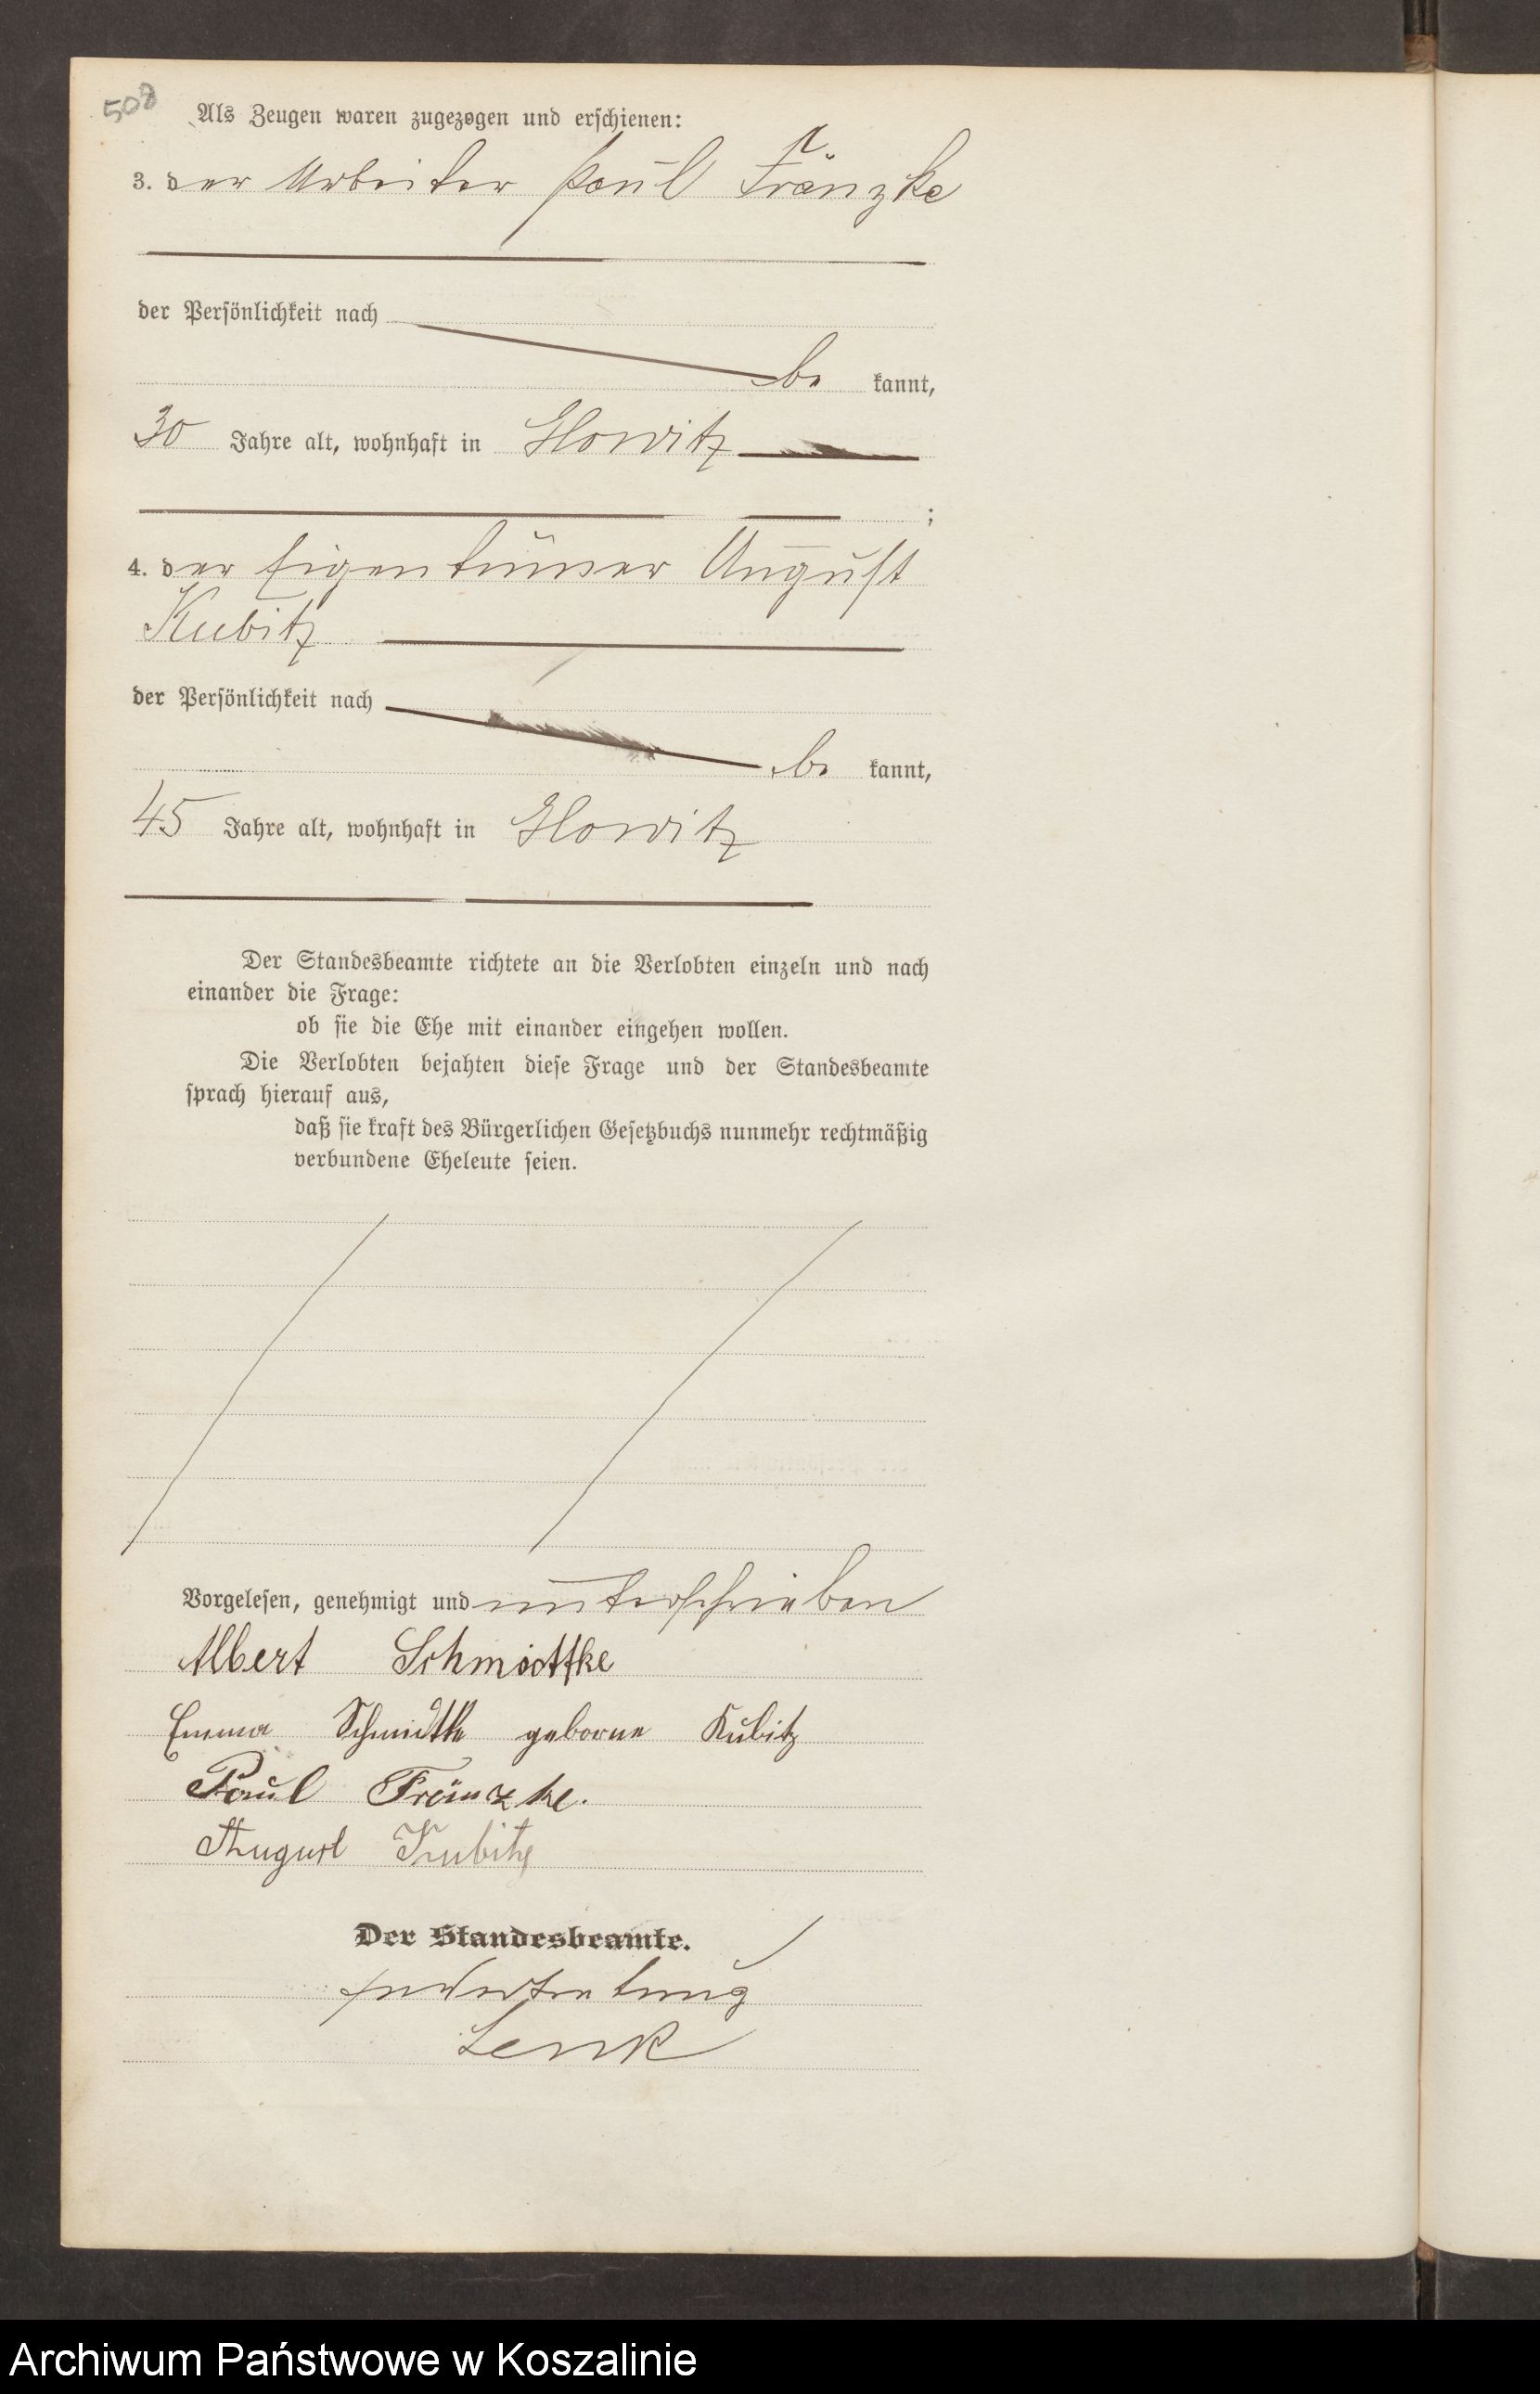 508
Als Zeugen waren zugezogen und erschienen:
3. der Arbeiter Paul Fränzke
der Persönlichkeit nach
be kannt,
30 Jahre alt, wohnhaft in Glowitz
;
4. der Eigentümer August
Kubitz
der Persönlichkeit nach
be kannt,
45 Jahre alt, wohnhaft in Glowitz
Der Standesbeamte richtete an die Verlobten einzeln und nach
einander die Frage:
ob sie die Ehe mit einander eingehen wollen.
Die Verlobten bejahten diese Frage und der Standesbeamte
sprach hierauf aus,
daß sie kraft des Bürgerlichen Gesetzbuchs nunmehr rechtmäßig
verbundene Eheleute seien.
Vorgelesen, genehmigt und unterschrieben
Albert Schmidtke
Emma Schmidtke geborne Kubitz
Paul Fränzke.
August Kubitz
Der Standesbeamte.
In Vertretung
Lenk
Archiwum Państwowe w Koszalinie